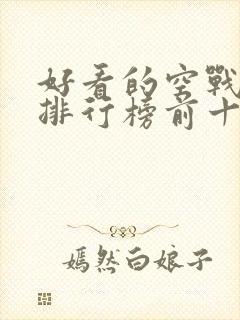 好看的空戰
排行榜前十
嫣然白娘子